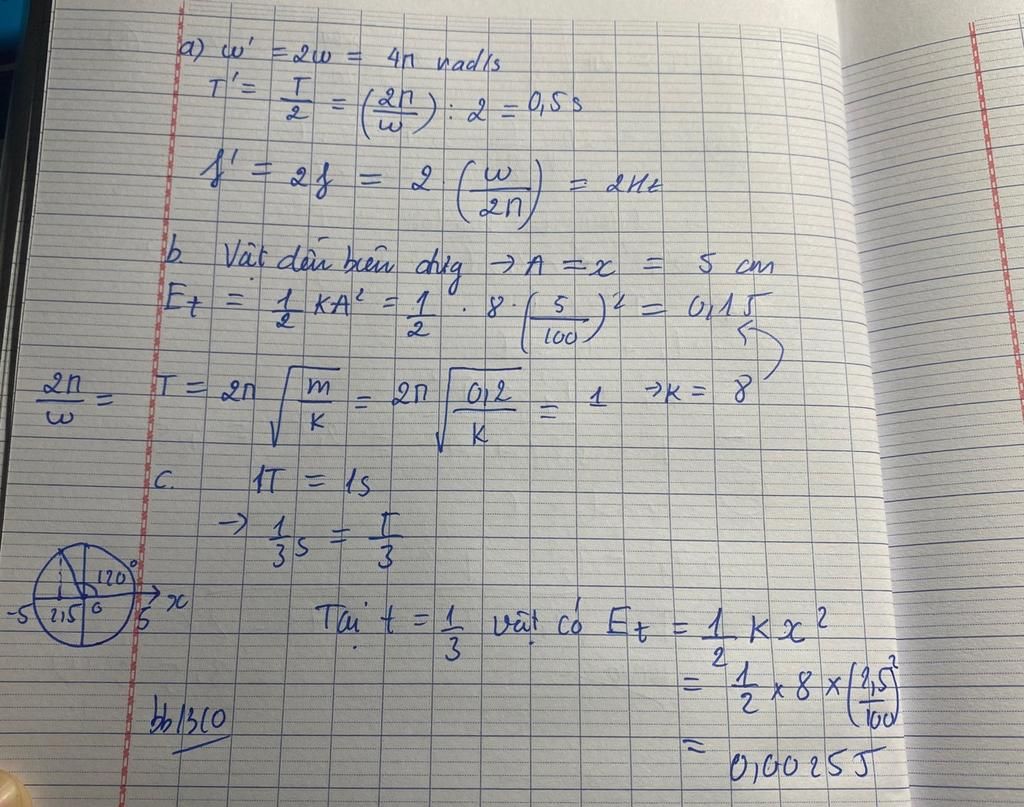 a) w' = 2w = 4π rad/s
T' = T/2 = (2π/w) : 2 = 0,5s
f' = 2f = 2 (w/2π) = 2Hz
b. Vật đến biên → A = x = 5 cm
Et = 1/2 KA² = 1/2 . 8 . (5/100)² = 0,1J
2π/w = T = 2π √(m/K) = 2π √(0,2/K) = 1 → K = 8
c. 1T = 1s
→ 1/3 s = T/3
120°
-5 2,5 0 5 x
Tại t = 1/3 vật có Et = 1/2 K x²
= 1/2 × 8 × (2,5/100)²
= 0,0025J